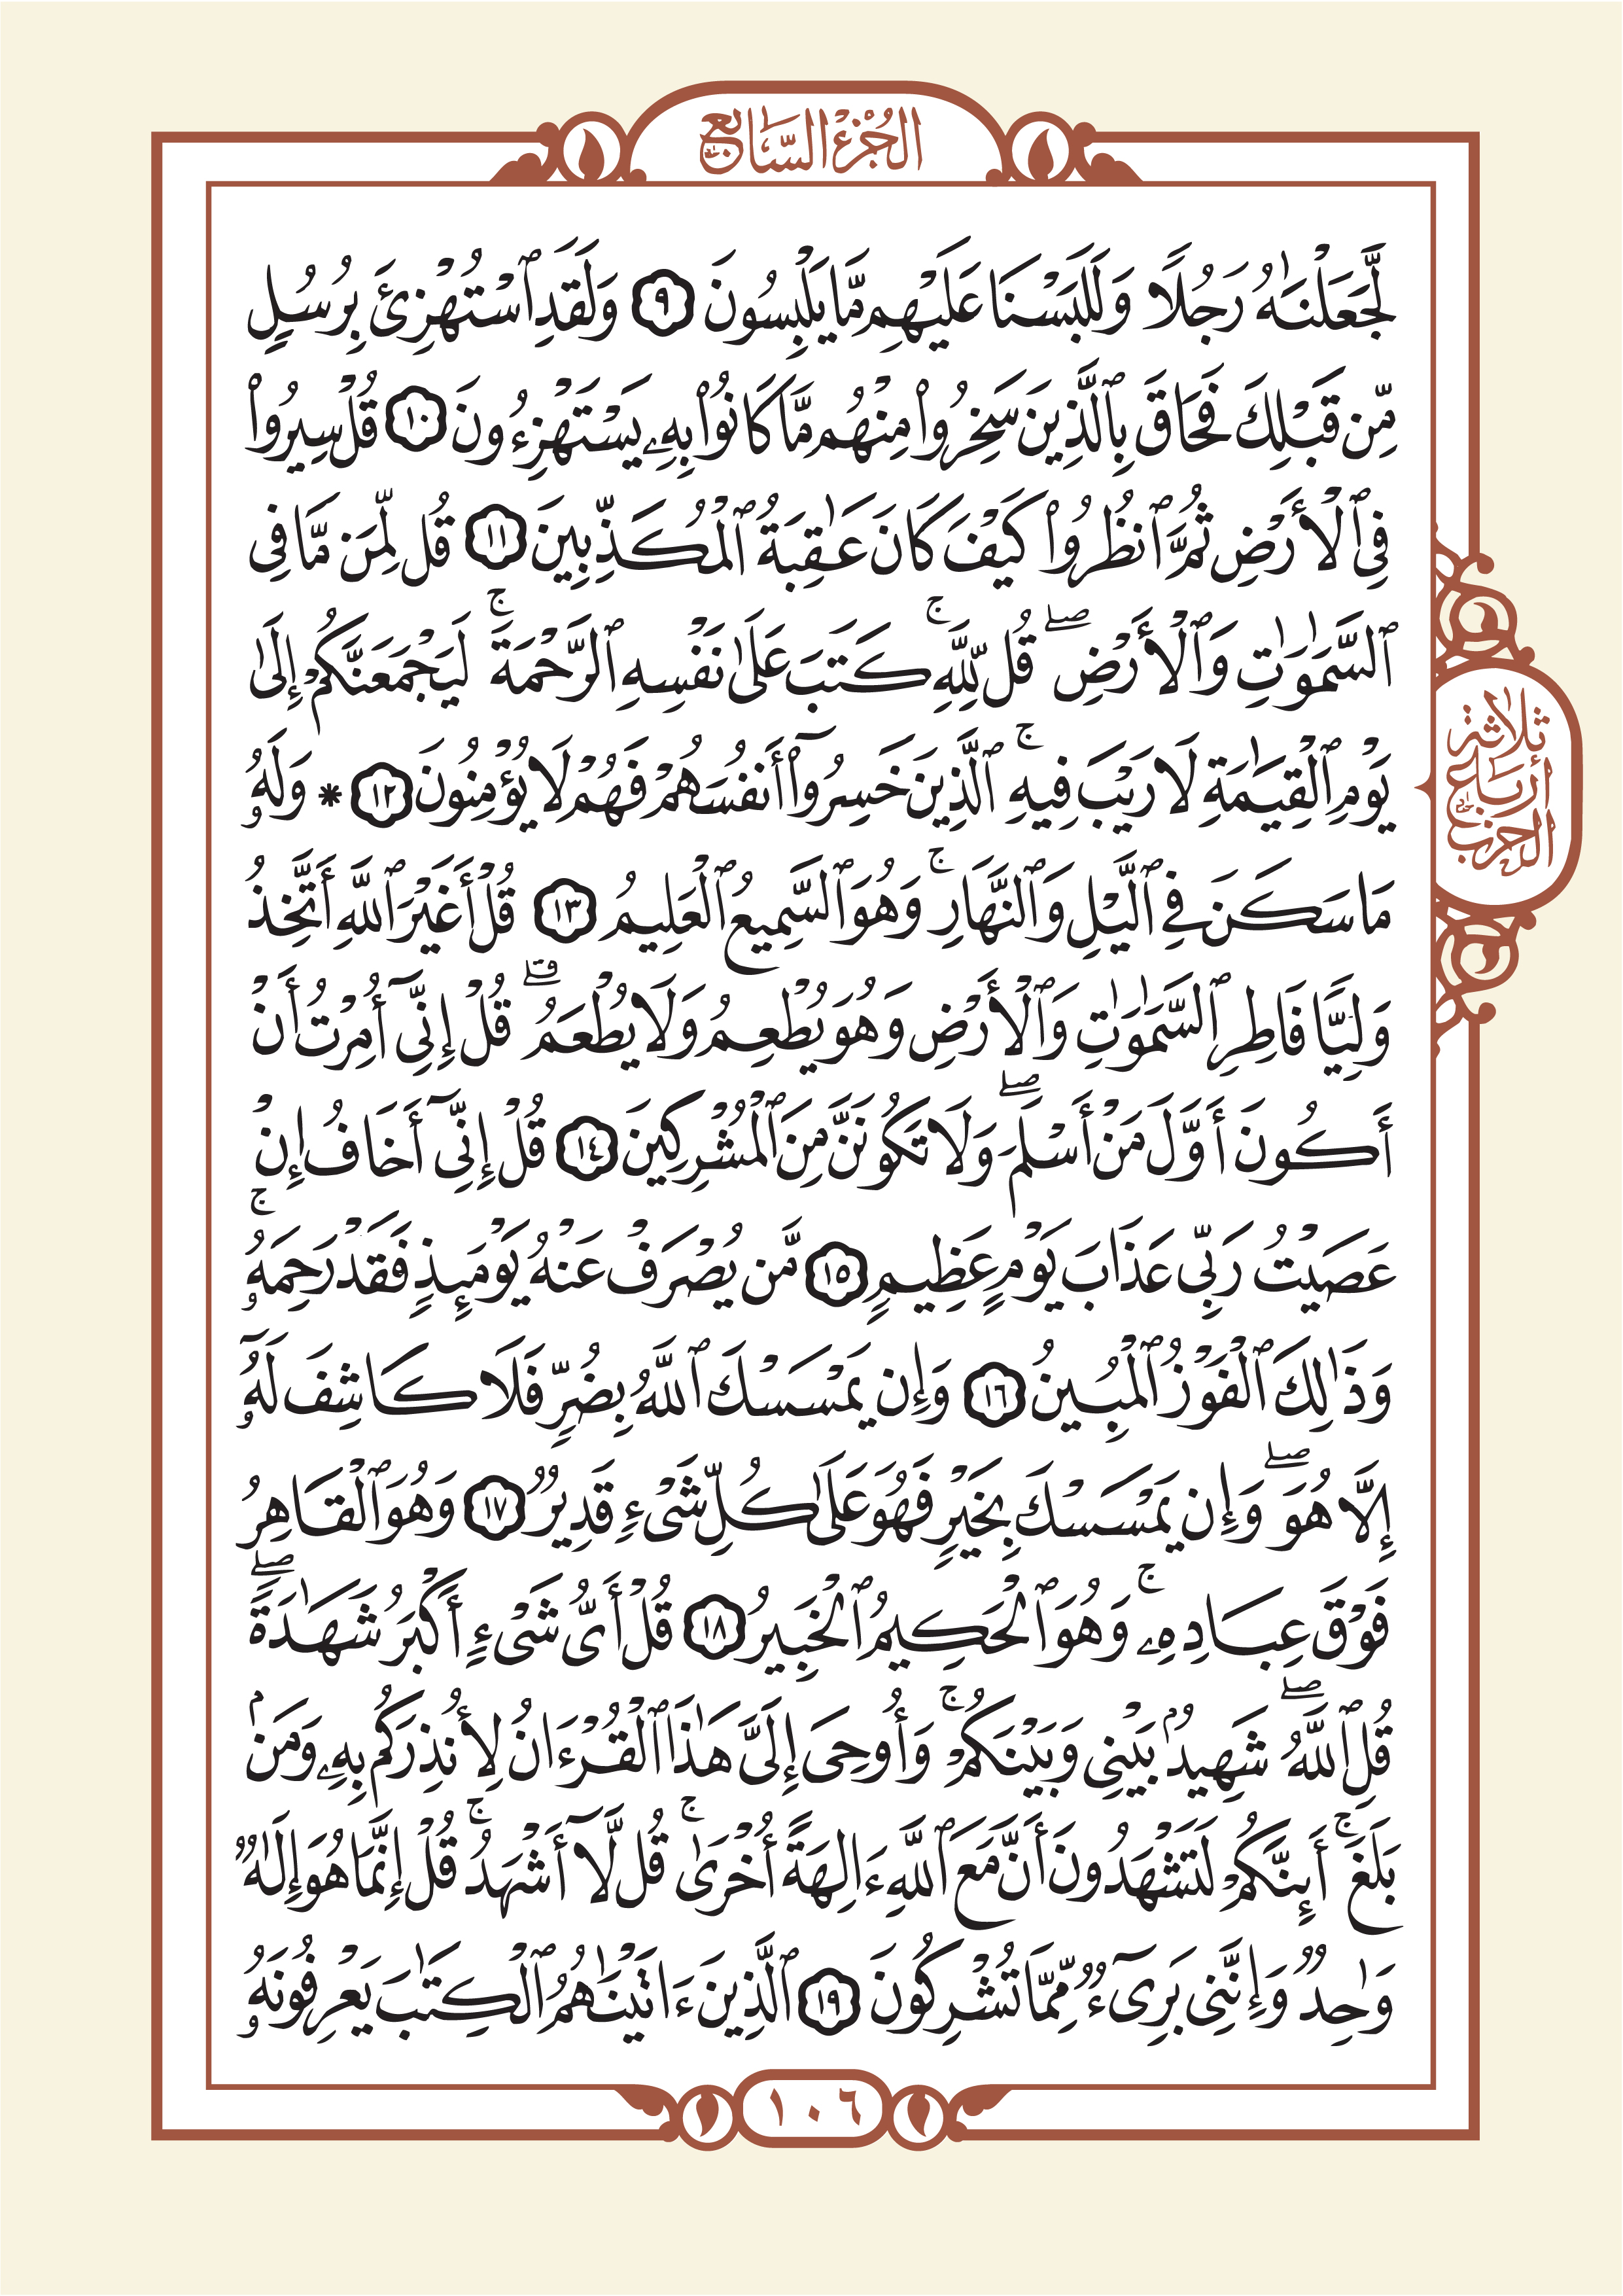 الجُزْءُ السَّابِعُ
لَّجَعَلْنَٰهُ رَجُلًا وَلَلَبَسْنَا عَلَيْهِم مَّا يَلْبِسُونَ ٩ وَلَقَدِ ٱسْتُهْزِئَ بِرُسُلٍ
مِّن قَبْلِكَ فَحَاقَ بِٱلَّذِينَ سَخِرُوا۟ مِنْهُم مَّا كَانُوا۟ بِهِۦ يَسْتَهْزِءُونَ ١٠ قُلْ سِيرُوا۟
فِى ٱلْأَرْضِ ثُمَّ ٱنظُرُوا۟ كَيْفَ كَانَ عَٰقِبَةُ ٱلْمُكَذِّبِينَ ١١ قُل لِّمَن مَّا فِى
ٱلسَّمَٰوَٰتِ وَٱلْأَرْضِ ۖ قُل لِّلَّهِ ۚ كَتَبَ عَلَىٰ نَفْسِهِ ٱلرَّحْمَةَ ۚ لَيَجْمَعَنَّكُمْ إِلَىٰ
يَوْمِ ٱلْقِيَٰمَةِ لَا رَيْبَ فِيهِ ۚ ٱلَّذِينَ خَسِرُوٓا۟ أَنفُسَهُمْ فَهُمْ لَا يُؤْمِنُونَ ١٢ * وَلَهُۥ
مَا سَكَنَ فِى ٱلَّيْلِ وَٱلنَّهَارِ ۚ وَهُوَ ٱلسَّمِيعُ ٱلْعَلِيمُ ١٣ قُلْ أَغَيْرَ ٱللَّهِ أَتَّخِذُ
وَلِيًّا فَاطِرِ ٱلسَّمَٰوَٰتِ وَٱلْأَرْضِ وَهُوَ يُطْعِمُ وَلَا يُطْعَمُ ۗ قُلْ إِنِّىٓ أُمِرْتُ أَنْ
أَكُونَ أَوَّلَ مَنْ أَسْلَمَ ۖ وَلَا تَكُونَنَّ مِنَ ٱلْمُشْرِكِينَ ١٤ قُلْ إِنِّىٓ أَخَافُ إِنْ
عَصَيْتُ رَبِّى عَذَابَ يَوْمٍ عَظِيمٍ ١٥ مَّن يُصْرَفْ عَنْهُ يَوْمَئِذٍ فَقَدْ رَحِمَهُۥ ۚ
وَذَٰلِكَ ٱلْفَوْزُ ٱلْمُبِينُ ١٦ وَإِن يَمْسَسْكَ ٱللَّهُ بِضُرٍّ فَلَا كَاشِفَ لَهُۥٓ
إِلَّا هُوَ ۖ وَإِن يَمْسَسْكَ بِخَيْرٍ فَهُوَ عَلَىٰ كُلِّ شَىْءٍ قَدِيرٌ ١٧ وَهُوَ ٱلْقَاهِرُ
فَوْقَ عِبَادِهِۦ ۚ وَهُوَ ٱلْحَكِيمُ ٱلْخَبِيرُ ١٨ قُلْ أَىُّ شَىْءٍ أَكْبَرُ شَهَٰدَةً ۖ
قُلِ ٱللَّهُ ۖ شَهِيدٌۢ بَيْنِى وَبَيْنَكُمْ ۚ وَأُوحِىَ إِلَىَّ هَٰذَا ٱلْقُرْءَانُ لِأُنذِرَكُم بِهِۦ وَمَنۢ
بَلَغَ ۚ أَئِنَّكُمْ لَتَشْهَدُونَ أَنَّ مَعَ ٱللَّهِ ءَالِهَةً أُخْرَىٰ ۚ قُل لَّآ أَشْهَدُ ۚ قُلْ إِنَّمَا هُوَ إِلَٰهٌ
وَٰحِدٌ وَإِنَّنِى بَرِىٓءٌ مِّمَّا تُشْرِكُونَ ١٩ ٱلَّذِينَ ءَاتَيْنَٰهُمُ ٱلْكِتَٰبَ يَعْرِفُونَهُۥ
ثلاثة
أرباع
الحزب
١٠٦